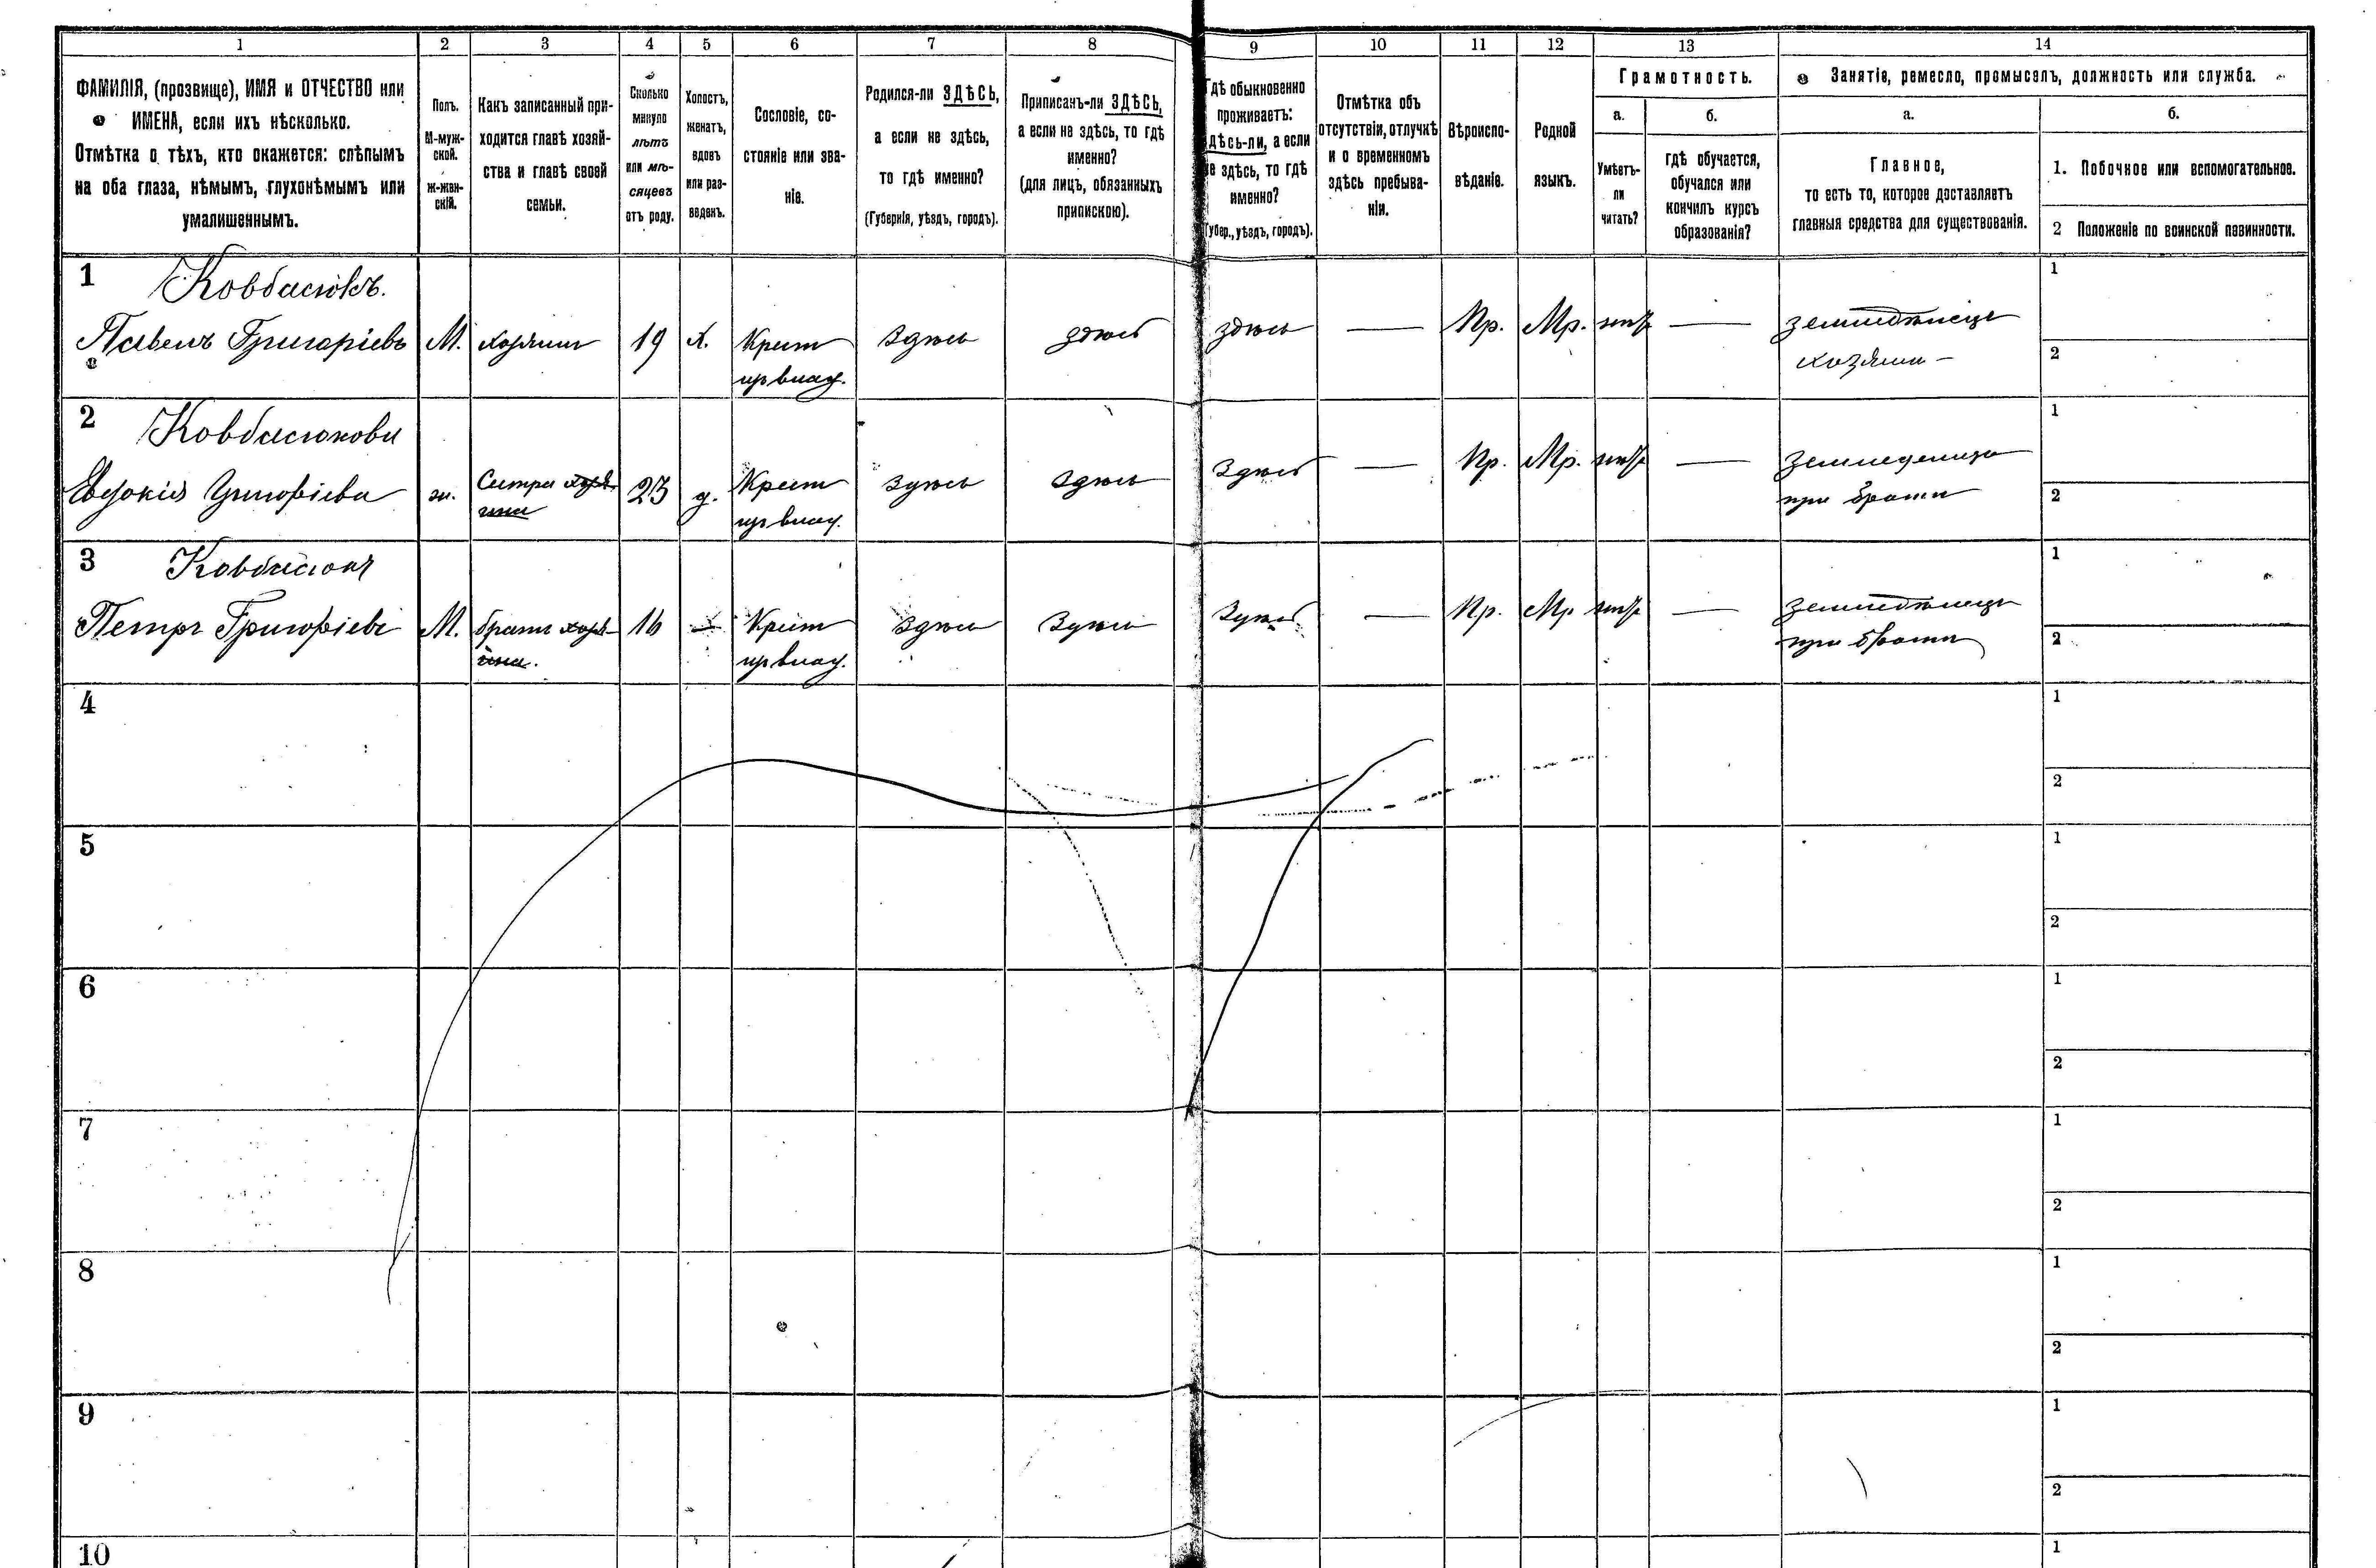 1 2 3 4 5 6 7 8 9 10 11 12 13 14
ФАМИЛІЯ, (прозвище), ИМЯ и ОТЧЕСТВО или
ИМЕНА, если ихъ нѣсколько.
Отмѣтка о тѣхъ, кто окажется: слѣпымъ
на оба глаза, нѣмымъ, глухонѣмымъ или
умалишеннымъ.
Полъ.
М-муж-
ской.
Ж-жен-
скій.
Какъ записанный при-
ходится главѣ хозяй-
ства и главѣ своей
семьи.
Сколько
минуло
лѣтъ
или мѣ-
сяцевъ
отъ роду.
Холостъ,
женатъ,
вдовъ
или раз-
веденъ.
Сословіе, со-
стояніе или зва-
ніе.
Родился-ли ЗДѢСЬ,
а если не здѣсь,
то гдѣ именно?
(Губернія, уѣздъ, городъ).
Приписанъ-ли ЗДѢСЬ,
а если не здѣсь, то гдѣ
именно?
(для лицъ, обязанныхъ
припискою).
Гдѣ обыкновенно
проживаетъ:
здѣсь-ли, а если
не здѣсь, то гдѣ
именно?
(Губер., уѣздъ, городъ).
Отмѣтка объ
отсутствіи, отлучкѣ
и о временномъ
здѣсь пребыва-
ніи.
Вѣроиспо-
вѣданіе.
Родной
языкъ.
Грамотность.
а.
Умѣетъ-
ли
читать?
б.
гдѣ обучается,
обучался или
кончилъ курсъ
образованія?
Занятіе, ремесло, промыселъ, должность или служба.
а.
Главное,
то есть то, которое доставляетъ
главныя средства для существованія.
б.
1. Побочное или вспомогательное.
2 Положеніе по воинской повинности.
1 Ковбасюкъ. 1
Павелъ Григоріевъ М. хозяинъ 19 х. Крест здѣсь здѣсь здѣсь — Пр. Мр. нѣтъ — земледѣлецъ
из влад. хозяинъ – 2
2 Ковбасюкова 1
Евдокія Григоріева ж. Сестра хозя- 23 д. Крест здѣсь здѣсь здѣсь — Пр. Мр. нѣтъ — земледелица
ина из влад. при братѣ 2
3 Ковбасюкъ 1
Петръ Григоріевъ М. братъ хозя- 16 — Крест здѣсь здѣсь здѣсь — Пр. Мр. нѣтъ — земледѣлецъ
ина. из влад. при братѣ 2
4 1
2
5 1
2
6 1
2
7 1
2
8 1
2
9 1
2
10 1